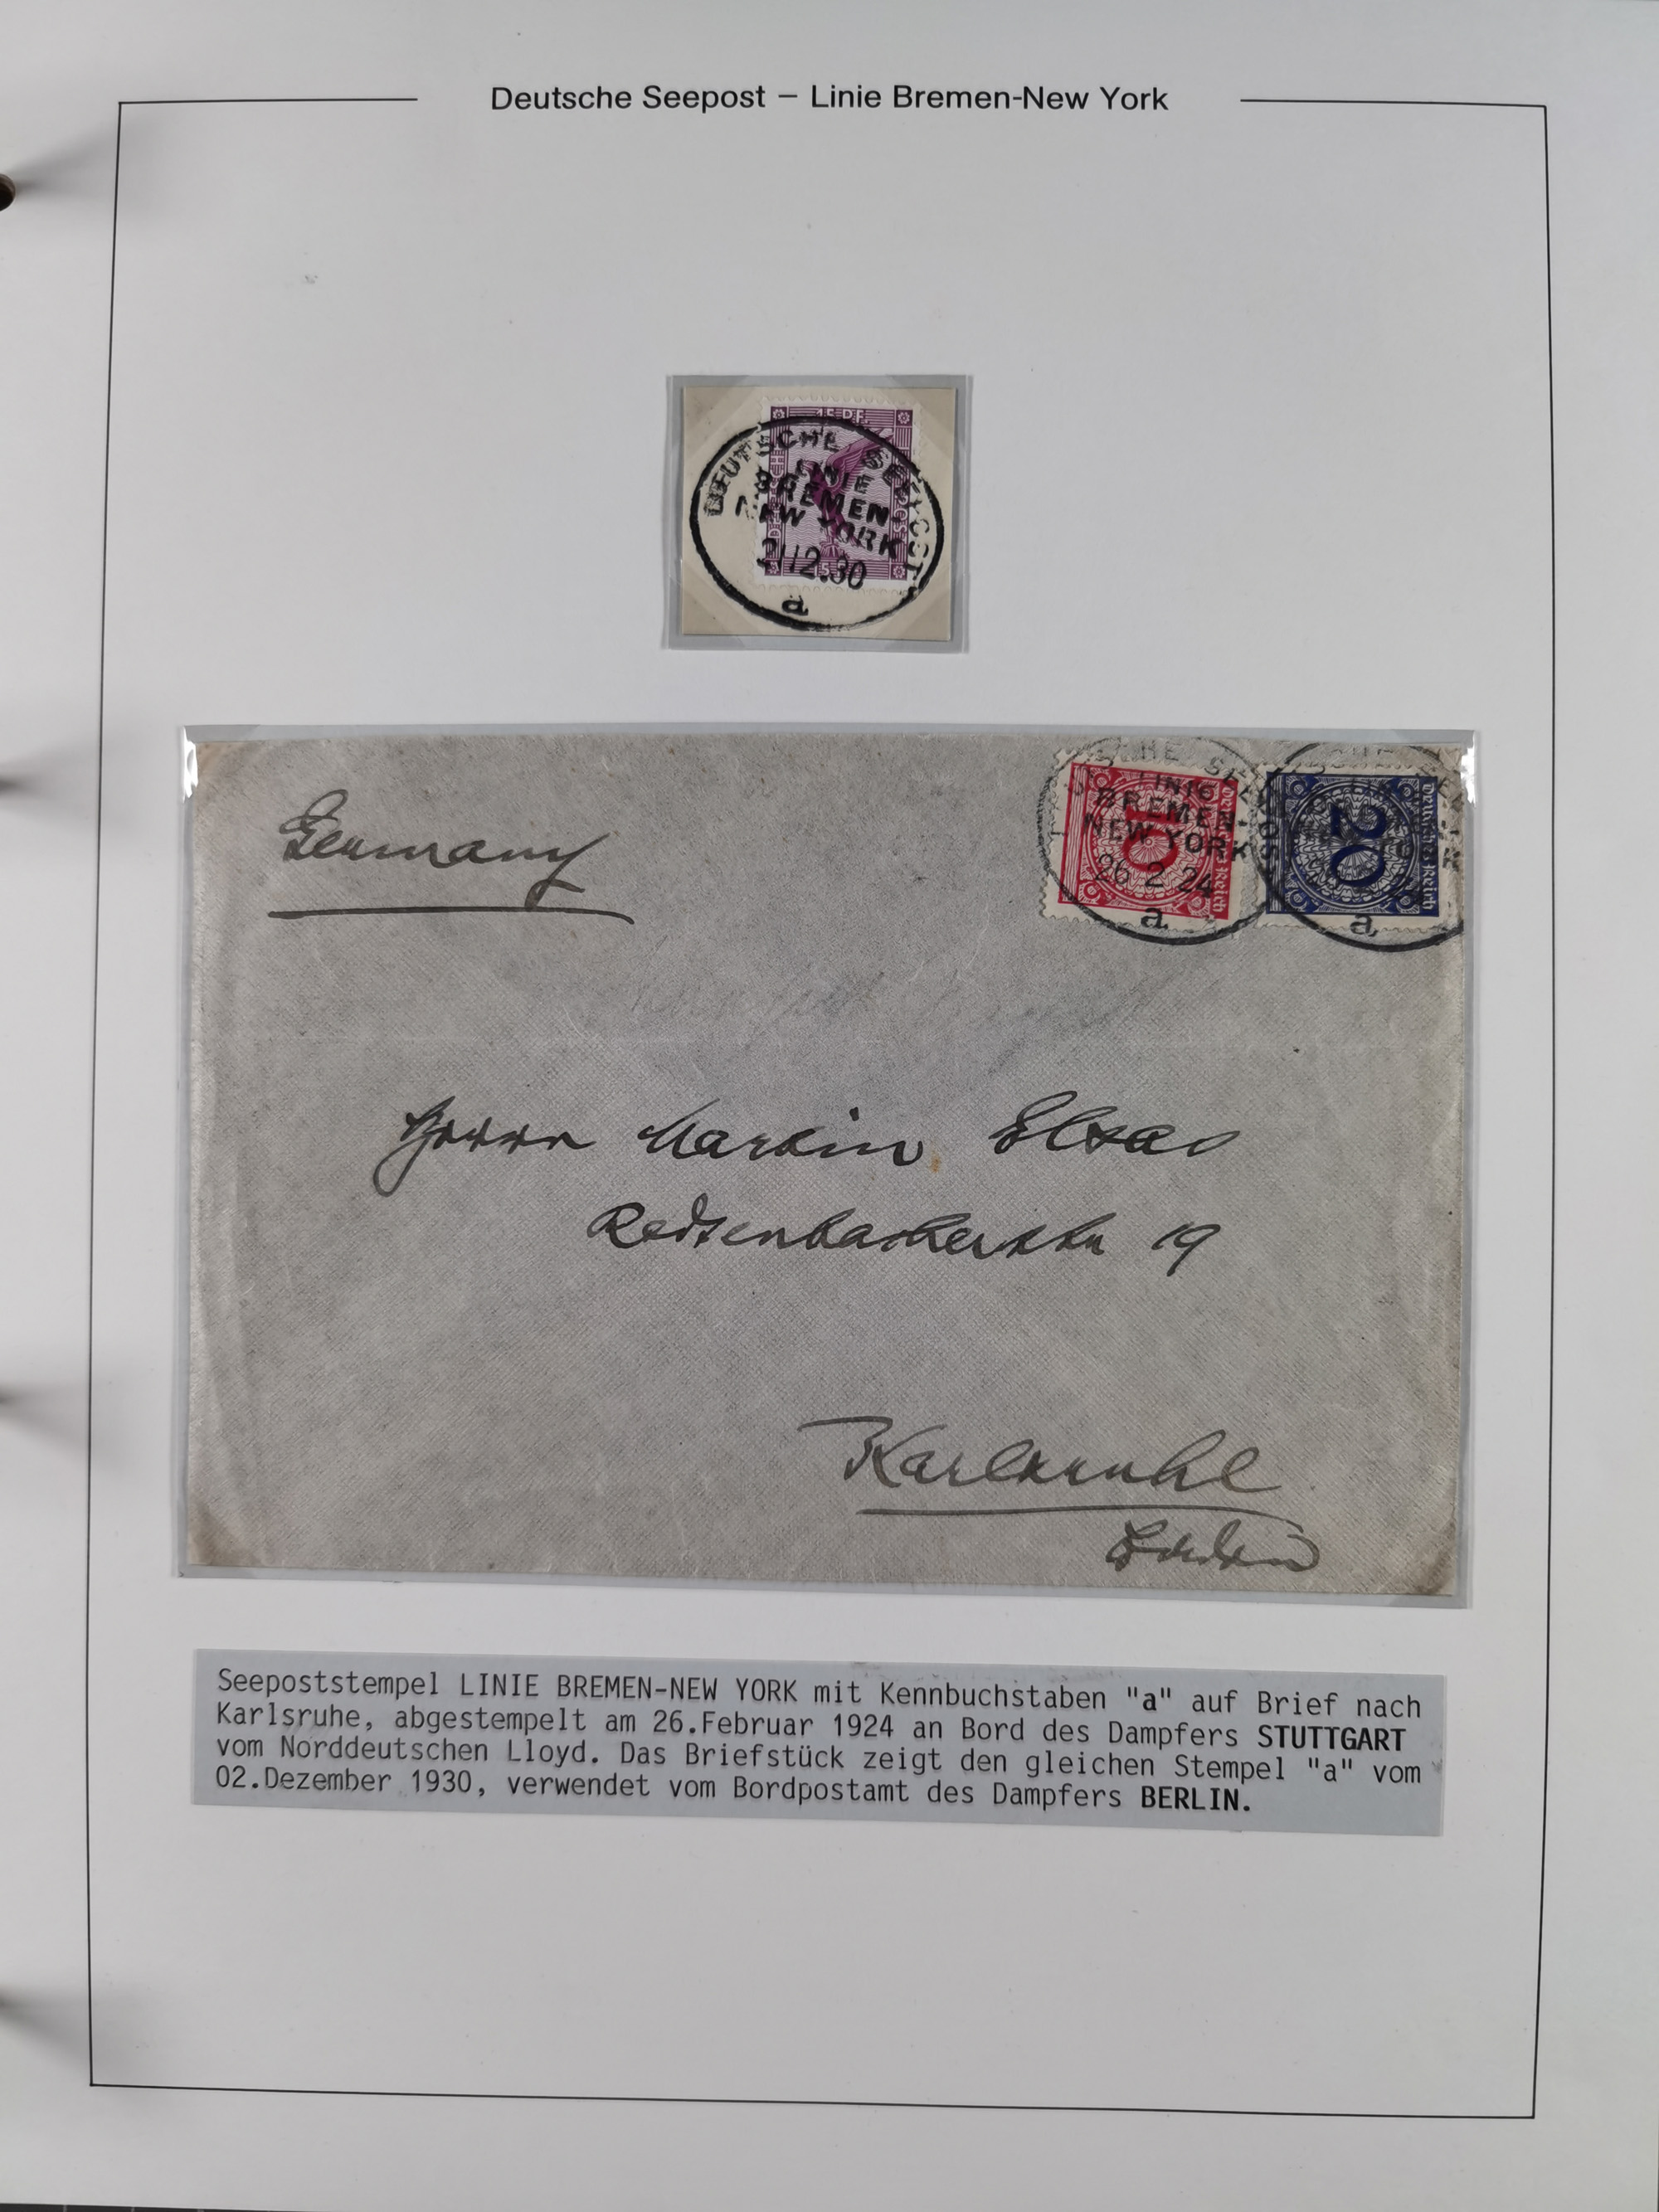 Deutsche Seepost – Linie Bremen-New York
15 PF
DEUTSCHE SEEPOST
LINIE
BREMEN-
NEW YORK
2.12.30
a
Germany
DEUTSCHE SEEPOST
LINIE
BREMEN-
NEW YORK
26 2 24
a
10
Deutsches Reich
20
Deutsches Reich
a
Herrn Martin Elsas
Redtenbacherstr 19
Karlsruhe
Baden
Seepoststempel LINIE BREMEN-NEW YORK mit Kennbuchstaben "a" auf Brief nach
Karlsruhe, abgestempelt am 26.Februar 1924 an Bord des Dampfers STUTTGART
vom Norddeutschen Lloyd. Das Briefstück zeigt den gleichen Stempel "a" vom
02.Dezember 1930, verwendet vom Bordpostamt des Dampfers BERLIN.